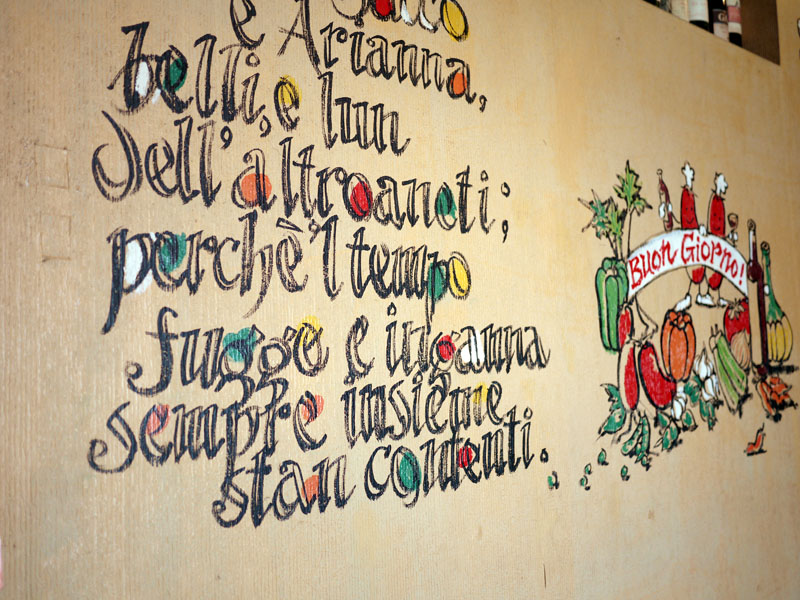 e Bacco
e Arianna,
belli, e l'un
dell'altro ardenti;
perchè 'l tempo
fugge e inganna
sempre insieme
stan contenti.
Buon Giorno!